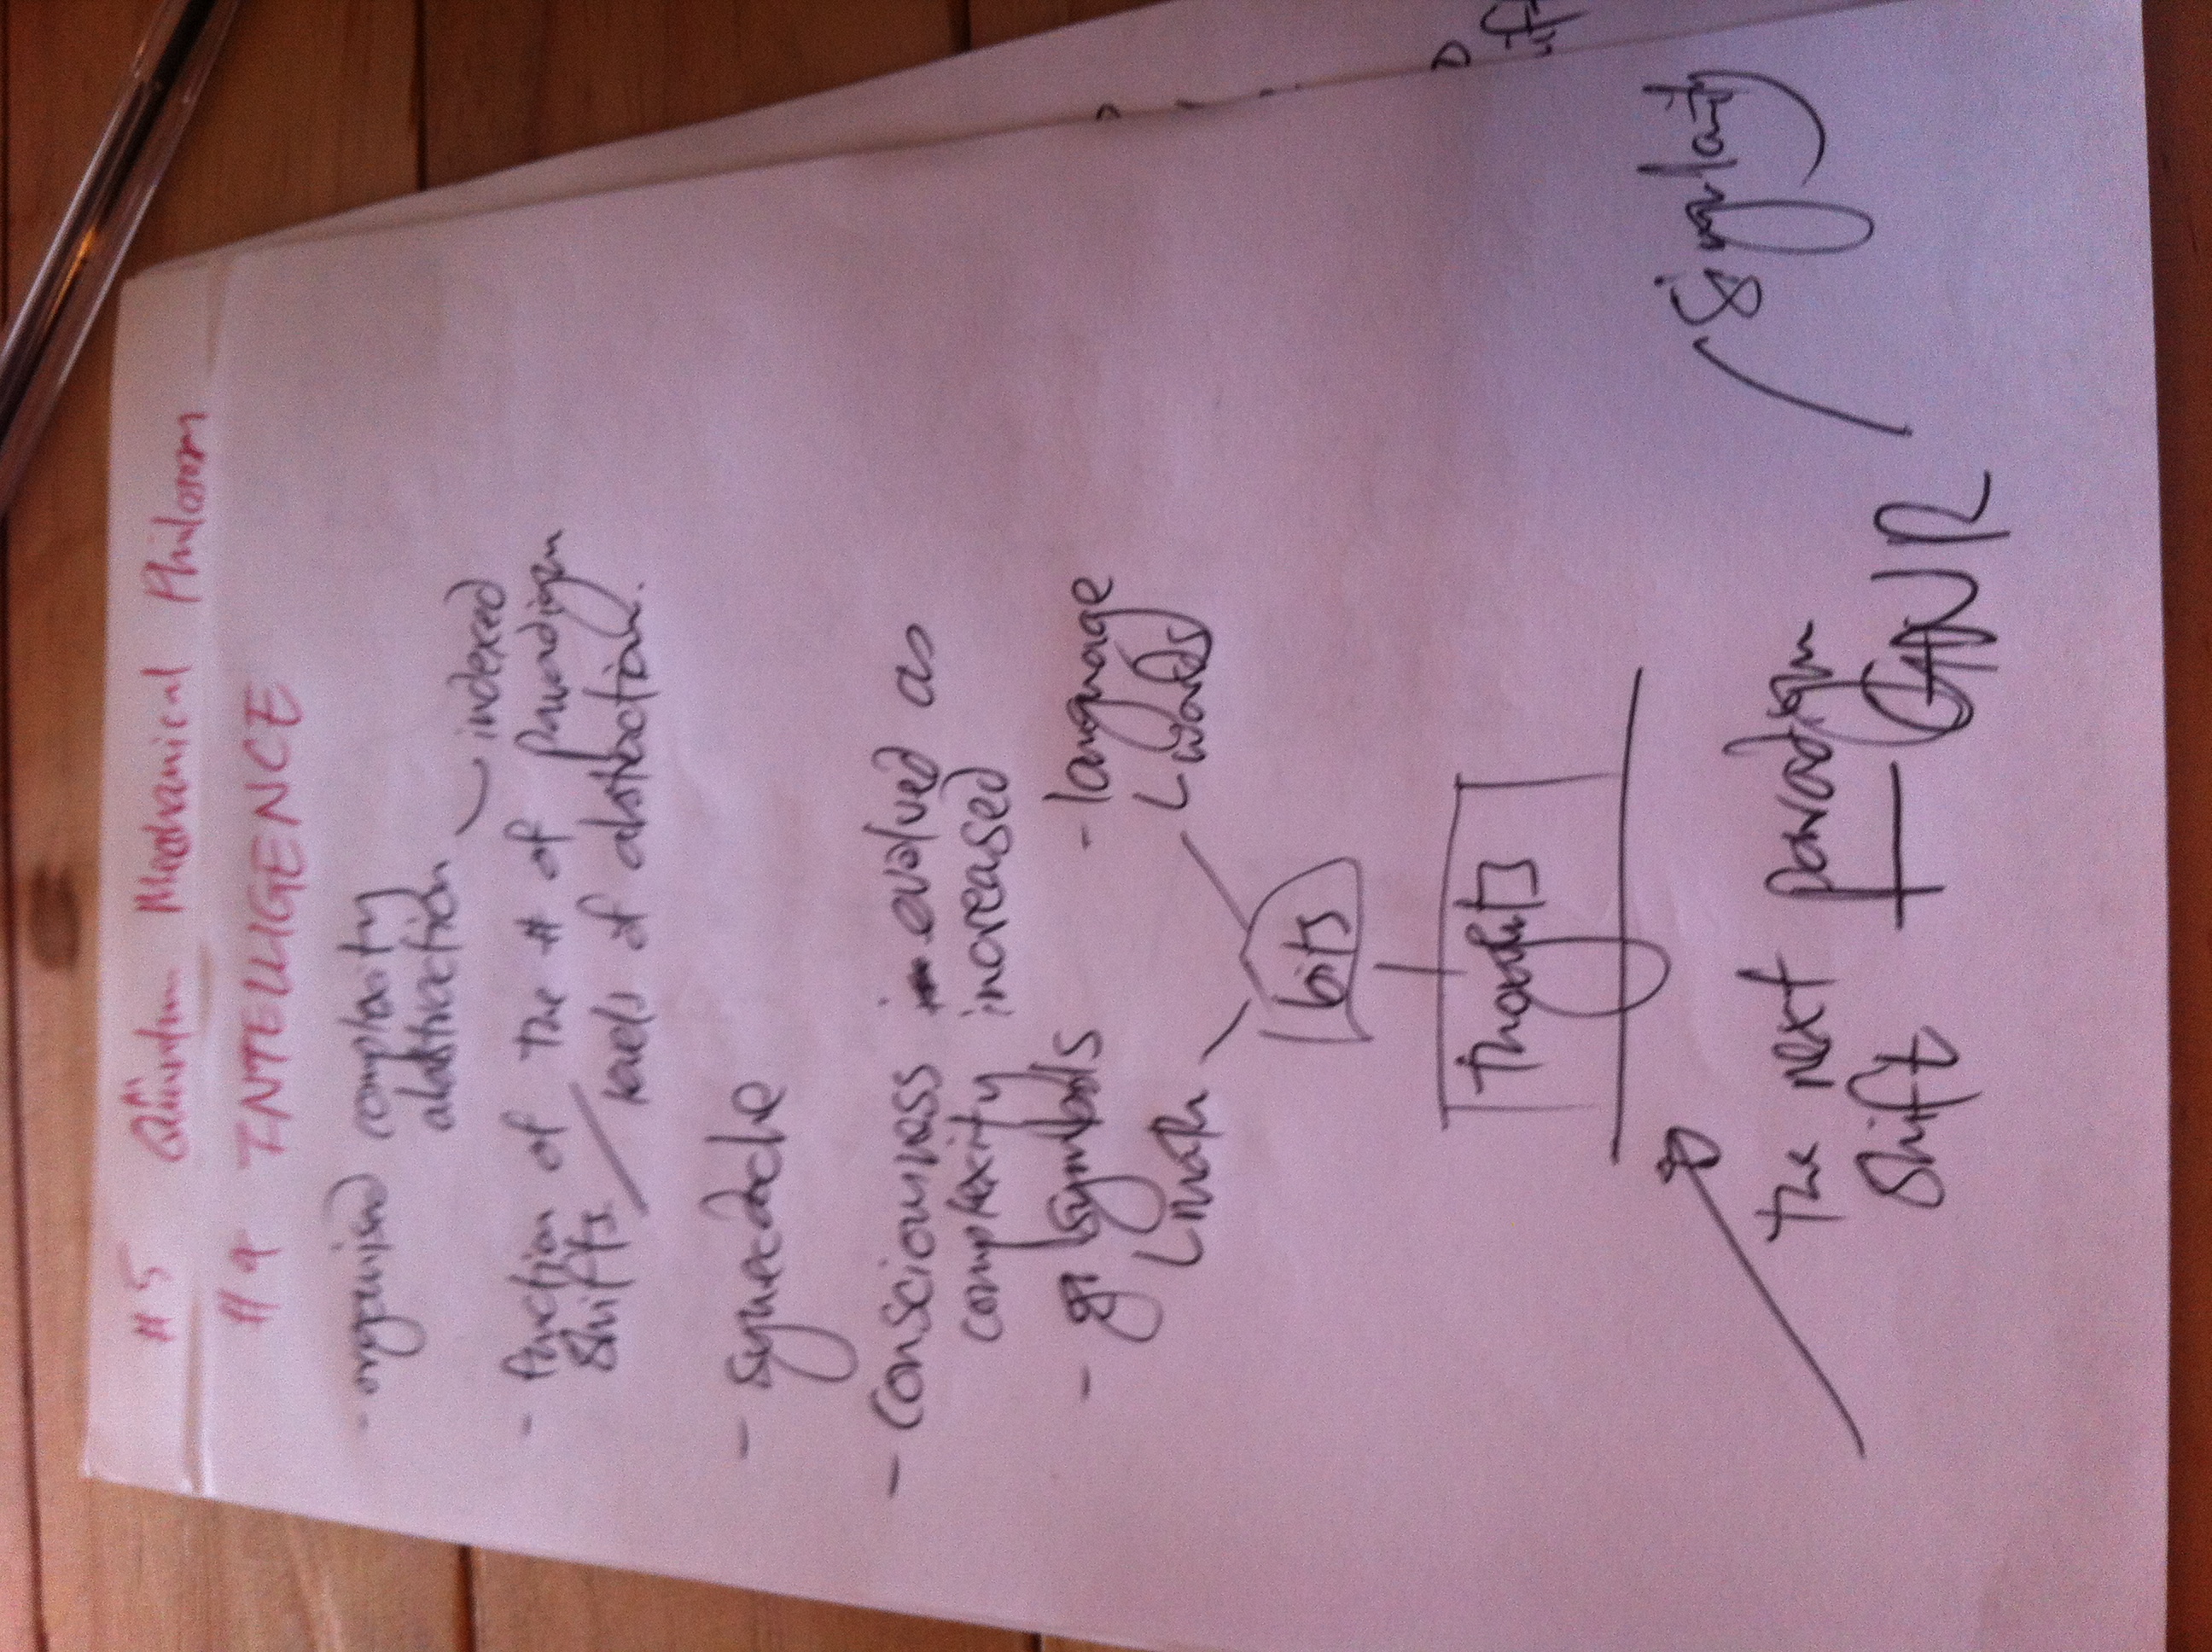 #5 Quantum Mechanical Philosom
#4 INTELLIGENCE
- organised complexity
abstraction
indexed
- function of the # of paradigm
shifts / levels of abstraction.
- synecdoche
- Consciousness evolved as
complexity increased
- symbols - language
math words
bits
thoughts
Singularity
the next paradigm
shift GNR